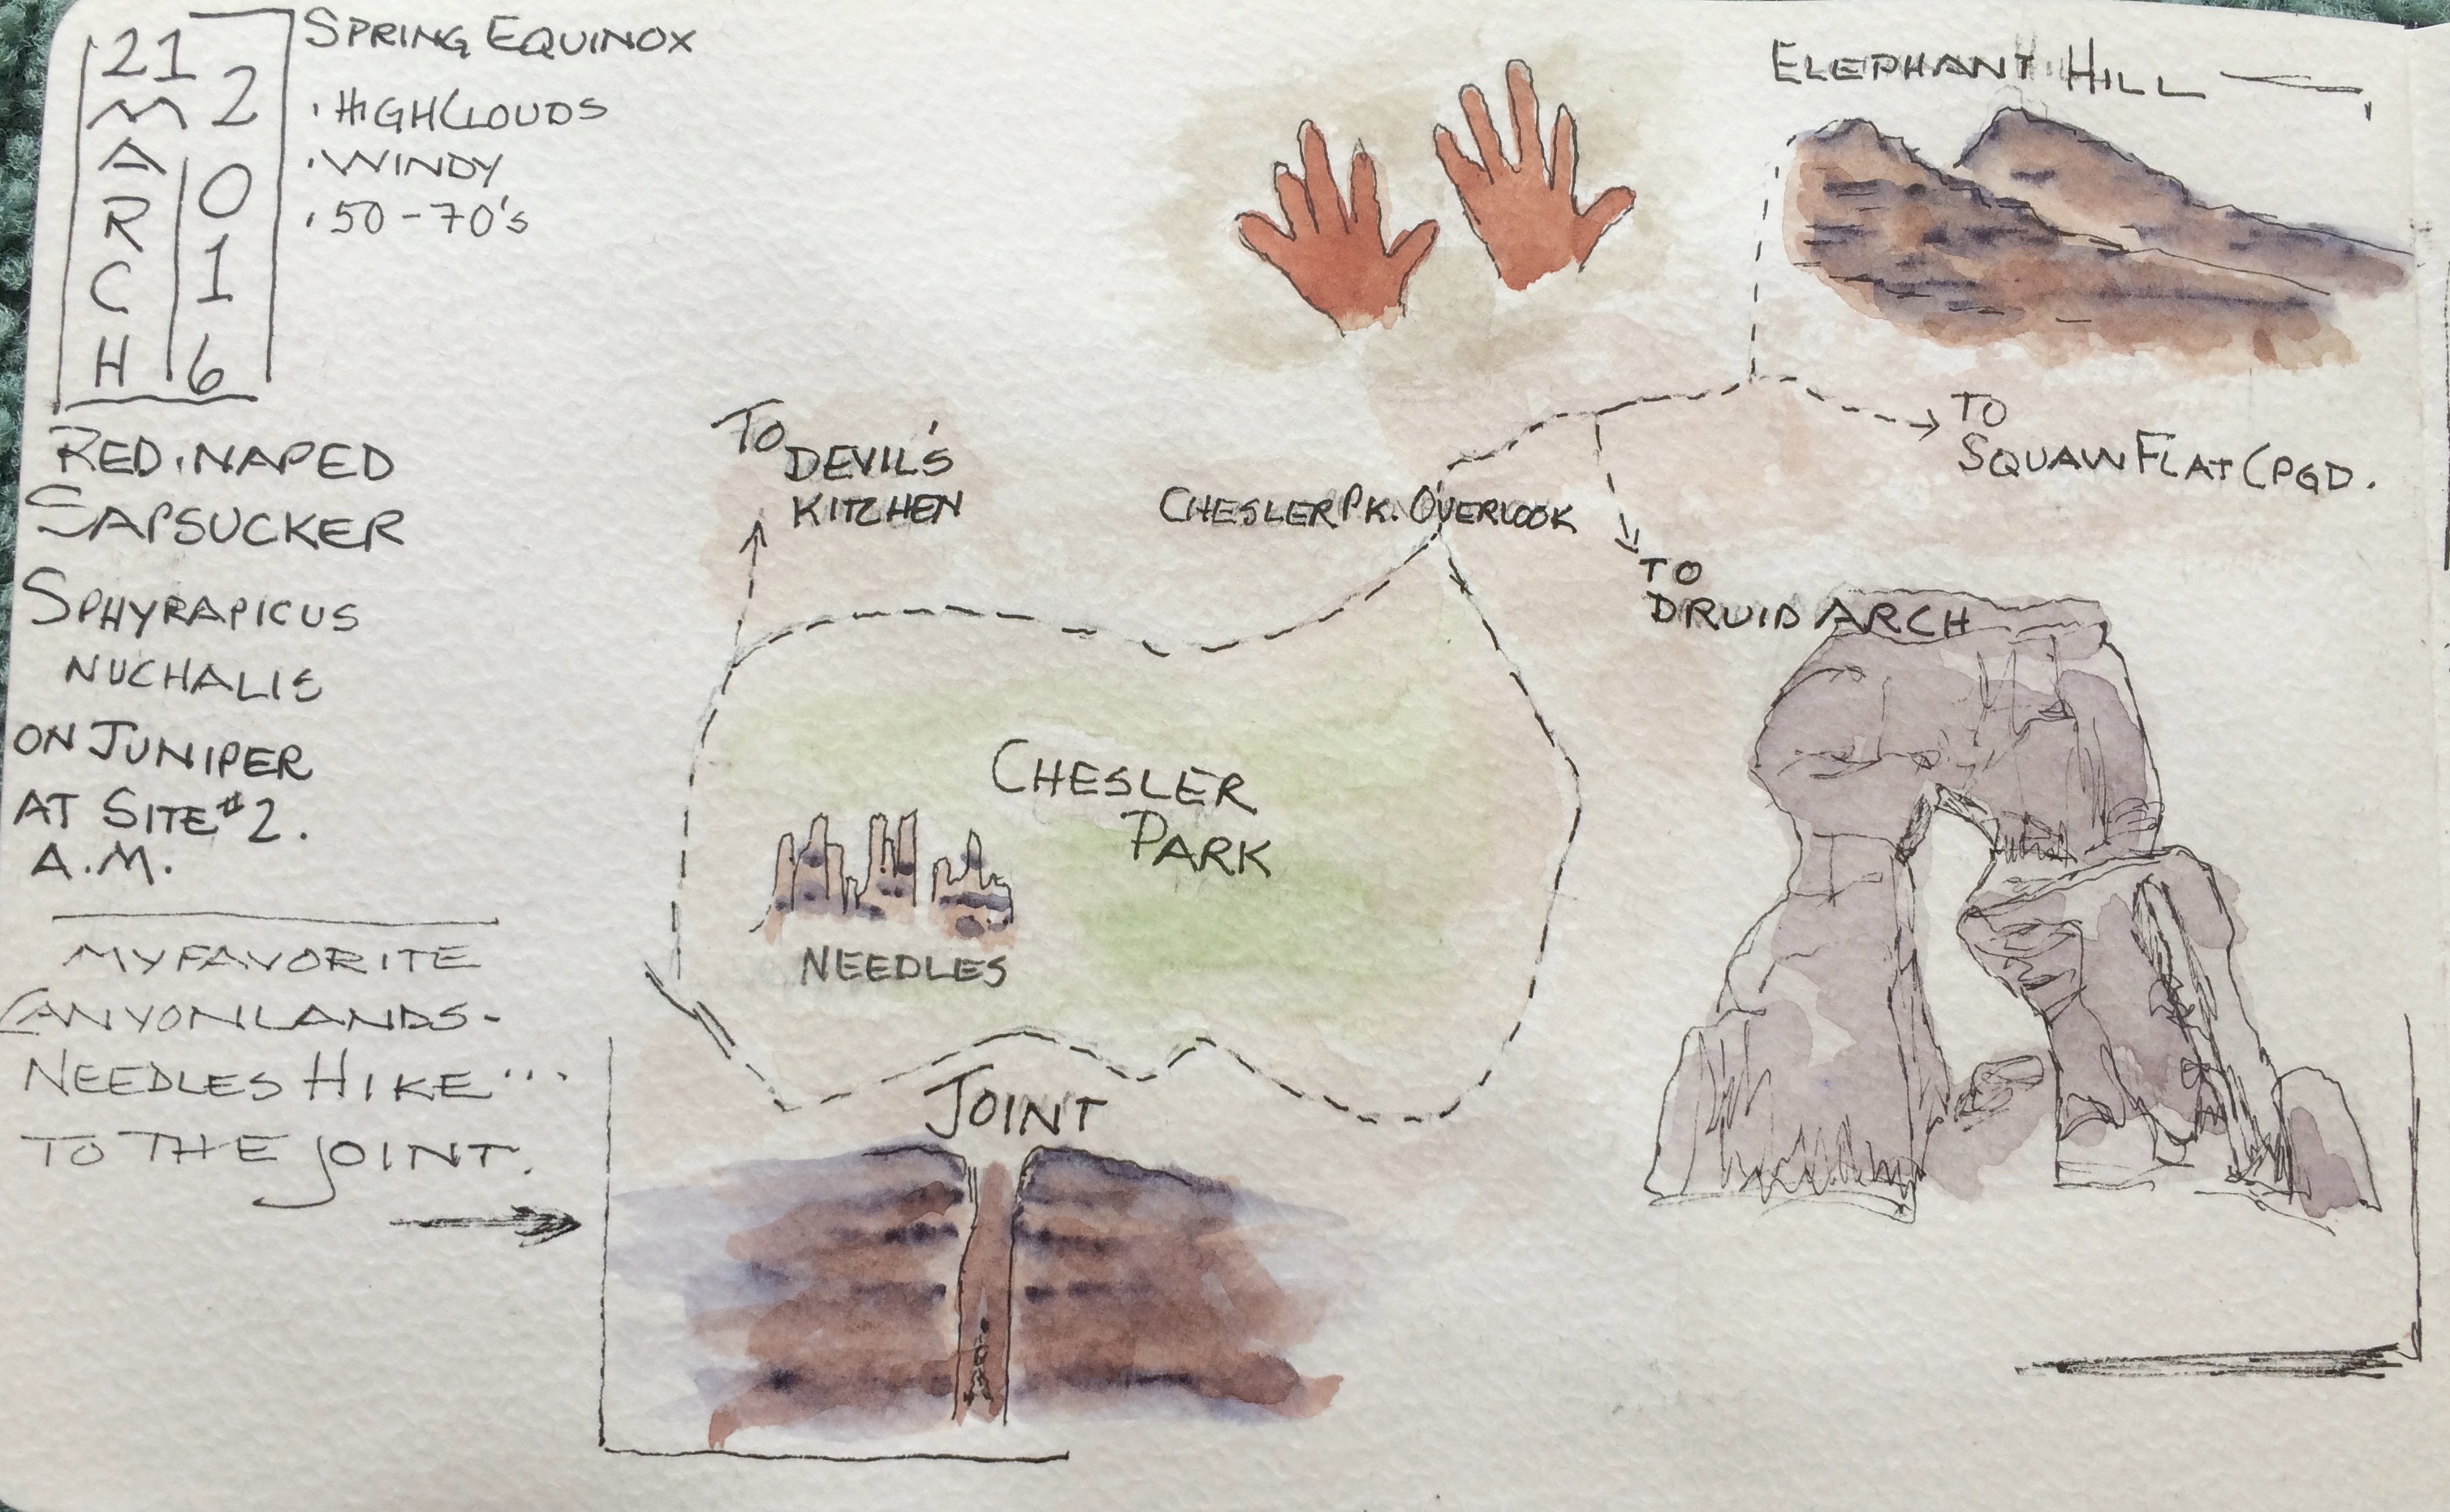 21
MARCH
2016
SPRING EQUINOX
· HIGH CLOUDS
· WINDY
· 50-70's
RED-NAPED
SAPSUCKER
SPHYRAPICUS
NUCHALIS
ON JUNIPER
AT SITE #2.
A.M.
MY FAVORITE
CANYONLANDS-
NEEDLES HIKE...
TO THE JOINT.
ELEPHANT HILL
TO
SQUAW FLAT CPGD.
TO
DEVIL'S
KITCHEN
CHESLER PK. OVERLOOK
TO
DRUID ARCH
CHESLER
PARK
NEEDLES
JOINT